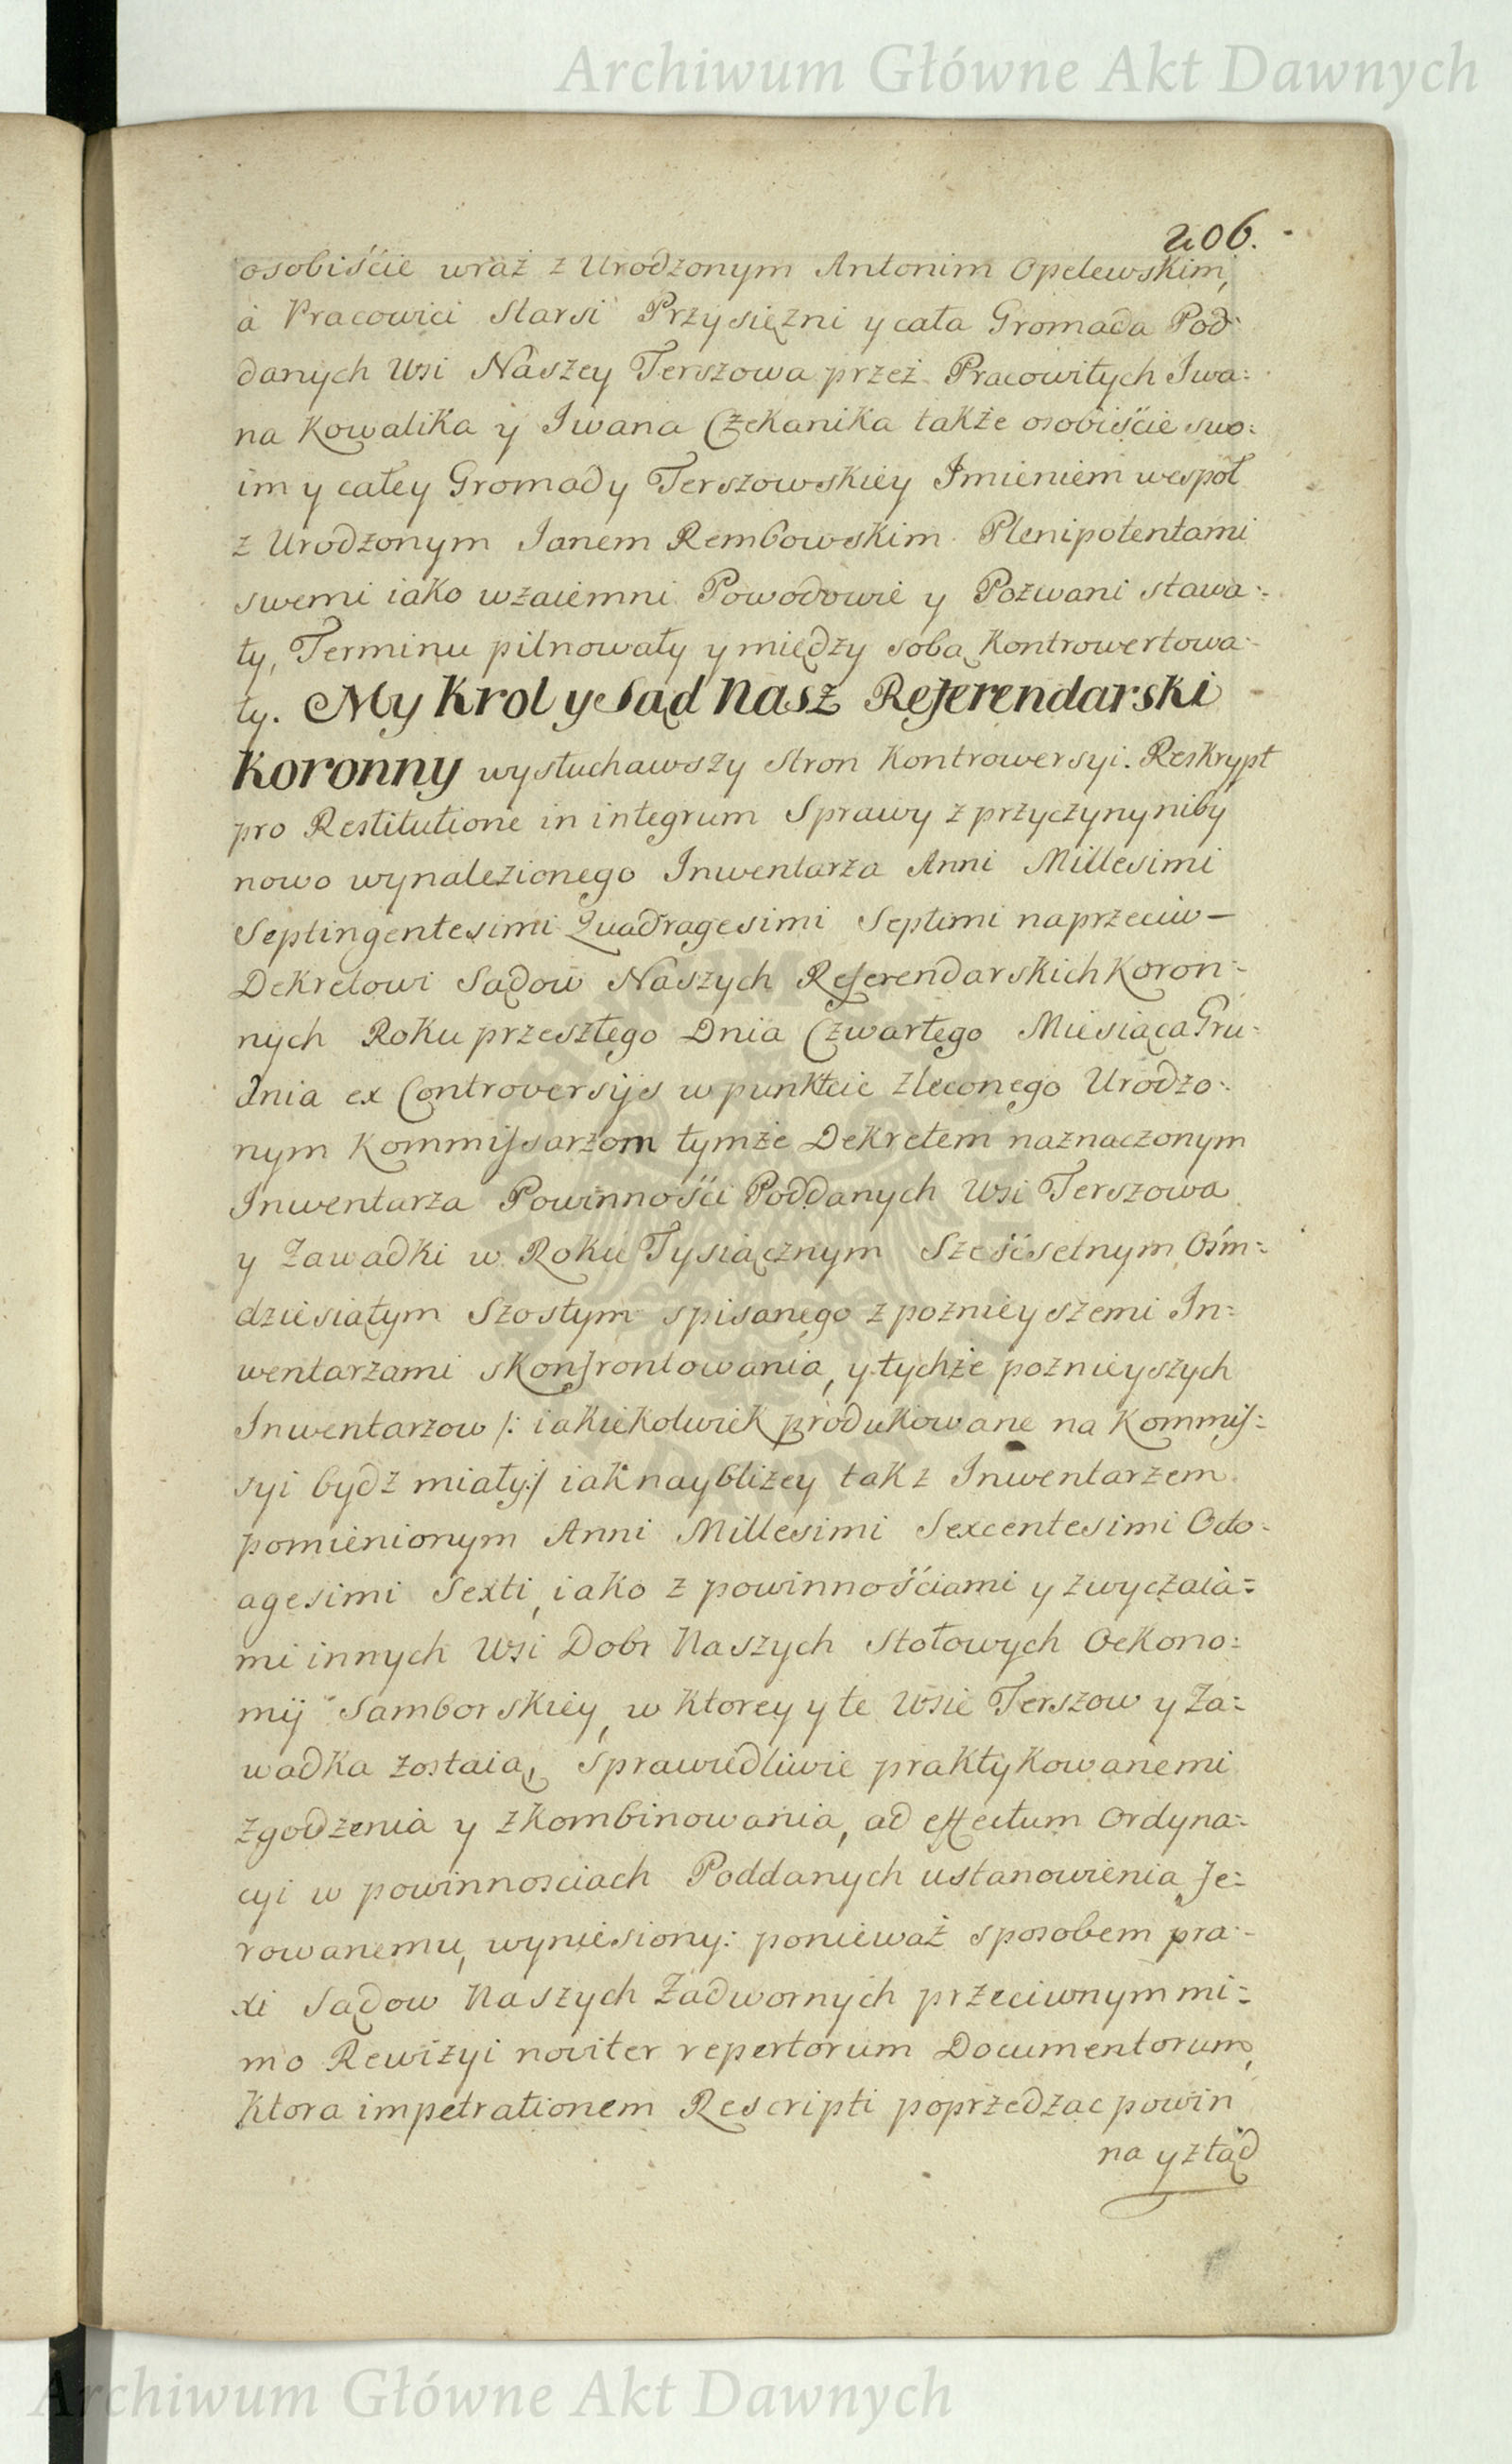 Archiwum Główne Akt Dawnych
206.
osobiście wraz z Urodzonym Antonim Opelewskim,
á Pracowici Starsi Przysiężni y cała Gromada Pod:
danych Wsi Naszey Terszowa przez Pracowitych Iwa:
na Kowalika y Iwana Czekanika także osobiście swo:
im y całey Gromady Terszowskiey Imieniem wespoł
z Urodzonym Ianem Rembowskim Plenipotentami
swemi iako wzaiemni Powodowie y Pozwani stawa:
ły, Terminu pilnowały y między sobą Kontrowertowa:
ły. My Krol y Sąd Nasz Referendarski
Koronny wysłuchawszy Stron Kontrowersyi. Reskrypt
pro Restitutione in integrum Sprawy z przyczyny niby
nowo wynalezionego Inwentarza Anni Millesimi
Septingentesimi Quadragesimi Septimi naprzeciw –
Dekretowi Sądow Naszych Referendarskich Koron:
nych Roku przeszłego Dnia Czwartego Miesiąca Gru:
dnia ex Controversijs w punkcie zleconego Urodzo:
nym Kommissarzom tymże Dekretem naznaczonym
Inwentarza Powinności Poddanych Wsi Terszowa
y Zawadki w Roku Tysiącznym Sześćsetnym Ośm:
dziesiątym Szostym spisanego z poznieyszemi In:
wentarzami skonfrontowania, y tychże poznieyszych
Inwentarzow /: iakiekolwiek produkowane na Kommis:
syi bydz miały :/ iak naybliżey tak z Inwentarzem
pomienionym Anni Millesimi Sexcentesimi Octo:
agesimi Sexti, iako z powinnościami y zwyczaia:
mi innych Wsi Dobr Naszych Stołowych Oekono:
mij Samborskiey, w ktorey y te Wsie Terszow y Za:
wadka zostaią, sprawiedliwie praktykowanemi
zgodzenia y zkombinowania, ad effectum Ordyna:
cyi w powinnosciach Poddanych ustanowienia fe:
rowanemu, wyniesiony: ponieważ sposobem pra:
xi Sądow Naszych Zadwornych przeciwnym mi:
mo Rewizyi noviter repertorum Documentorum,
Ktora impetrationem Rescripti poprzedzac powin
na y ztąd
Archiwum Główne Akt Dawnych